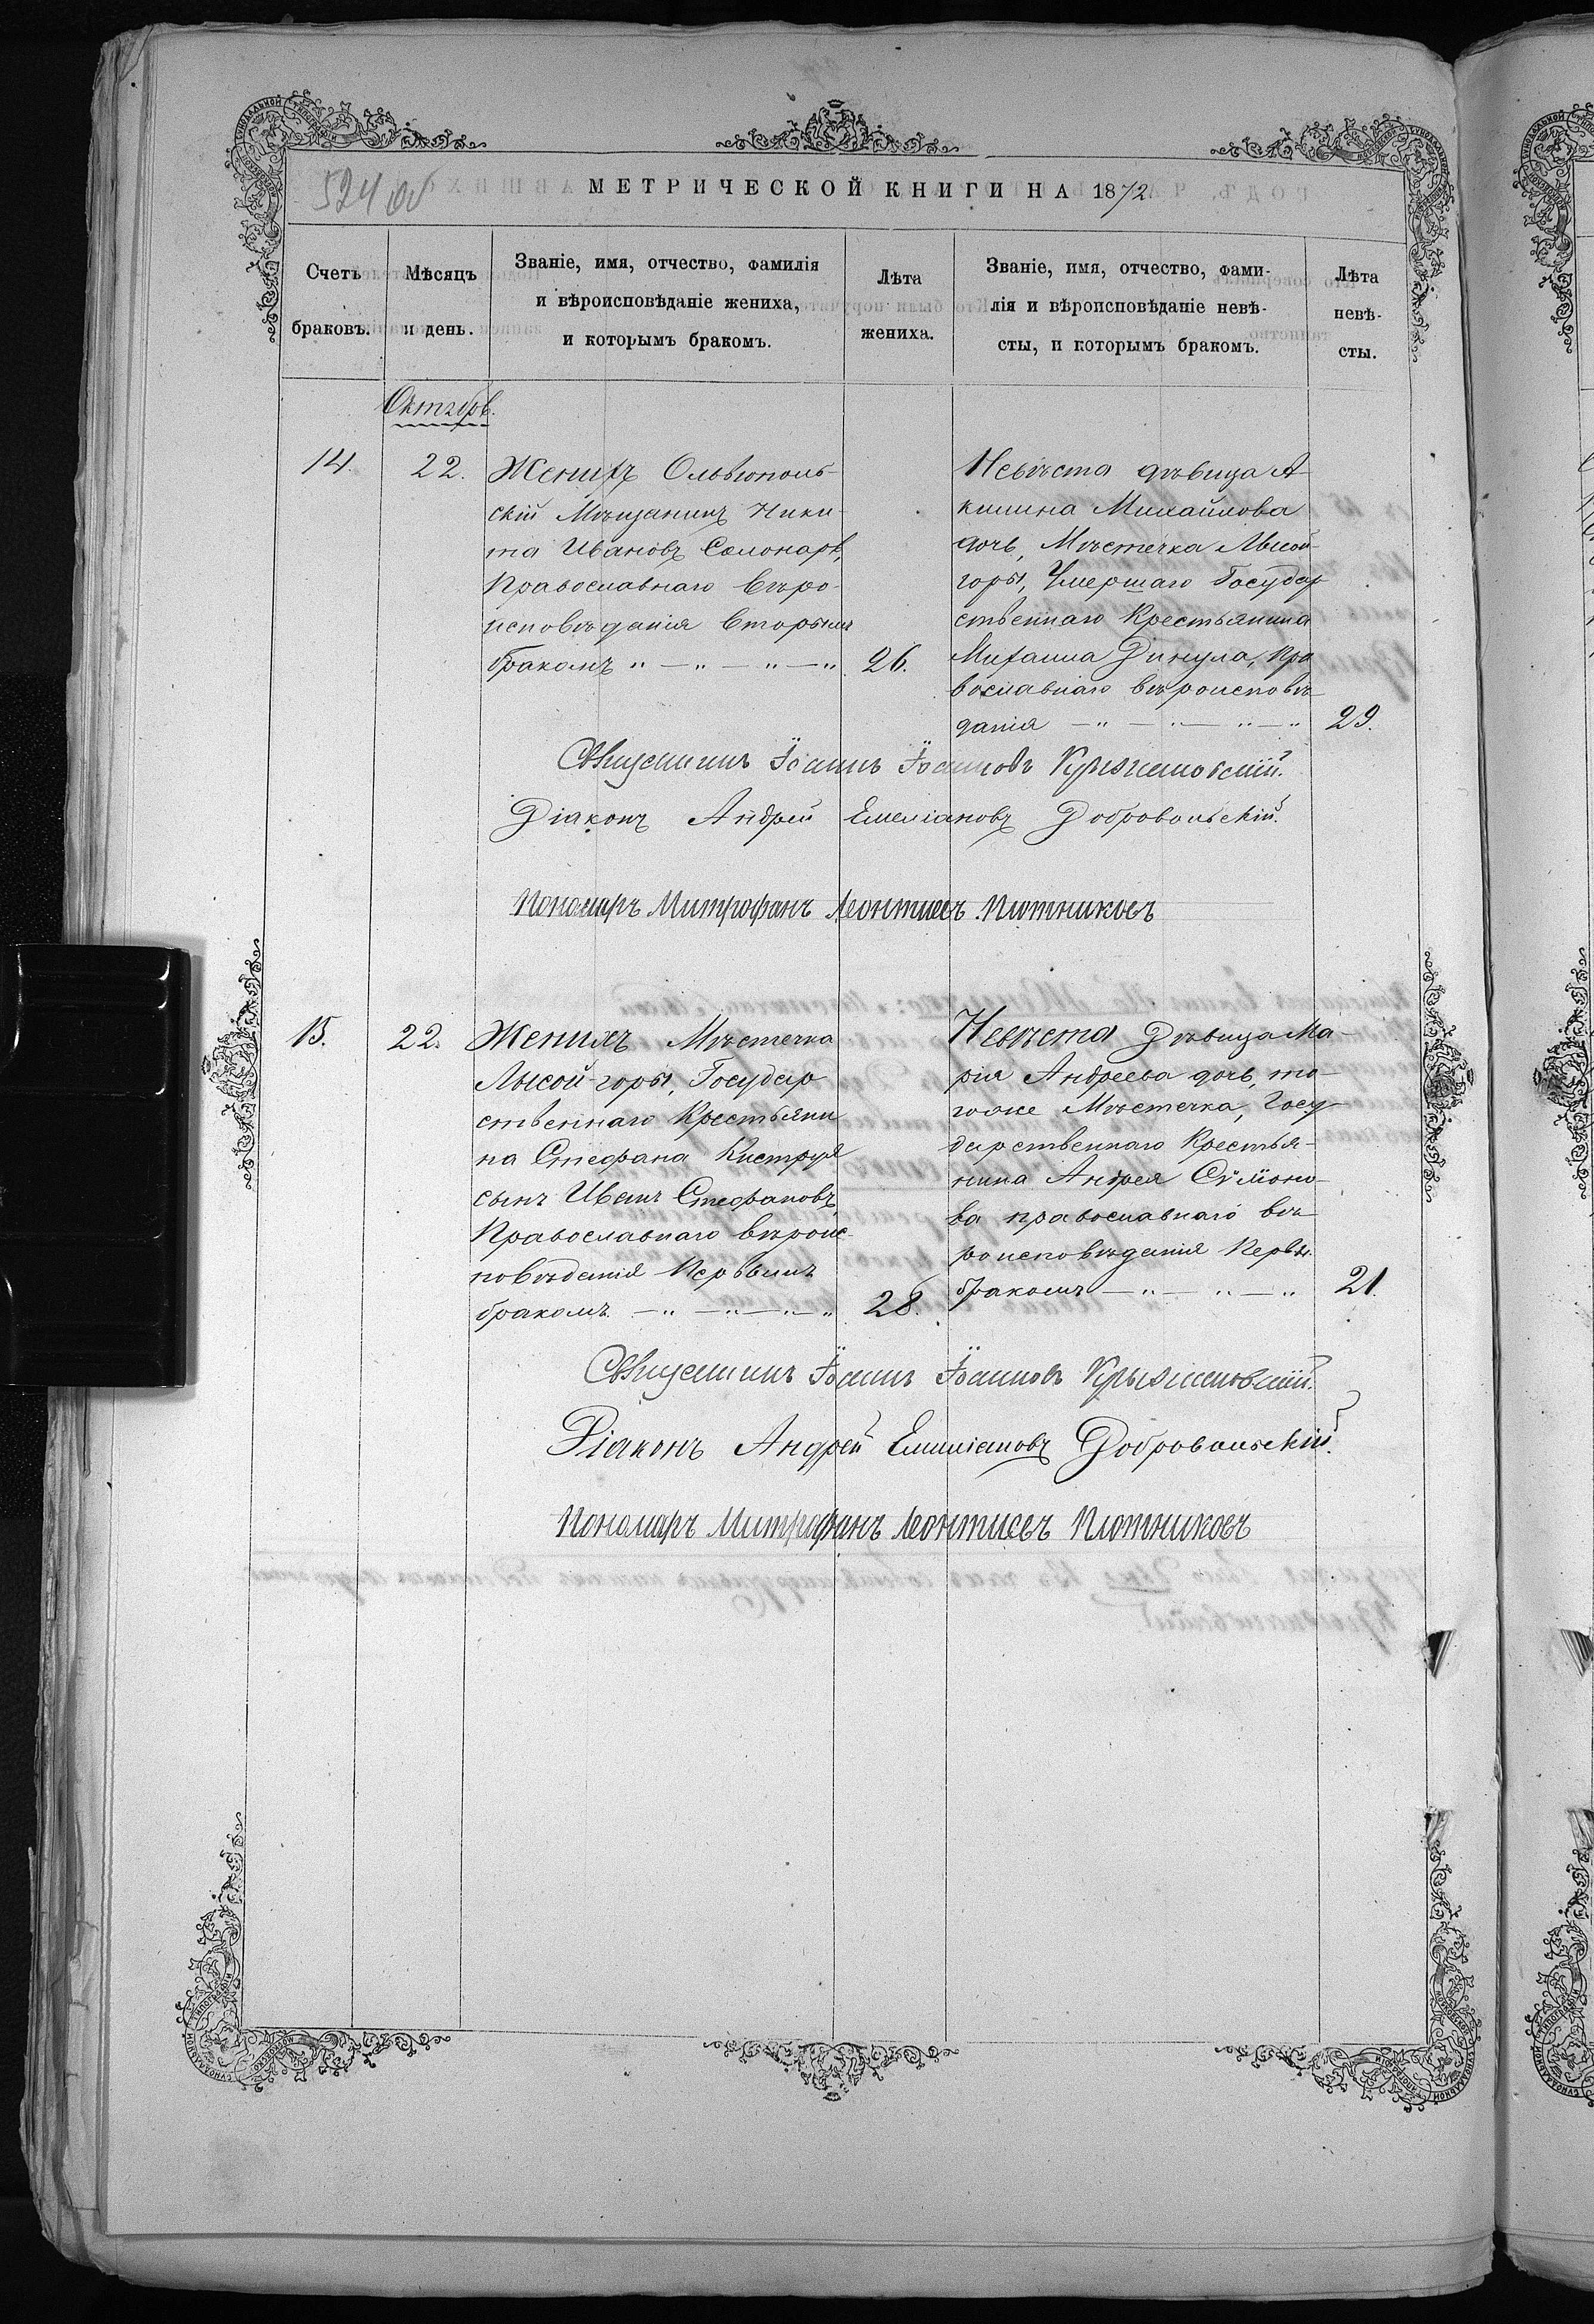 524 об
МЕТРИЧЕСКОЙ КНИГИ НА 1872
Счетъ браковъ.
Мѣсяцъ и день.
Званіе, имя, отчество, фамилія
и вѣроисповѣданіе жениха,
и которымъ бракомъ.
Лѣта жениха.
Званіе, имя, отчество, фами-
лія и вѣроисповѣданіе невѣ-
сты, и которымъ бракомъ.
Лѣта невѣ-
сты.
Октябрь.
14.
22.
Женихъ Ольвіополь-
скій Мѣщанинъ Ники-
та Ивановъ Солонарь,
Православнаго Вѣро-
исповѣданія Вторымъ
бракомъ " — " — " — "
26.
Невѣста дѣвица А-
килина Михайлова
дочь, Мѣстечка Лысой
горы, Умершаго Государ
ственнаго Крестьянина
Михаила Динула, Пра
вославнаго вѣроисповѣ-
данія — " — " — " — "
29.
Священникъ Іоаннъ Іоанновъ Крыжановскій.
Діаконъ Андрей Емеліановъ Добровольскій.
Пономарь Митрофанъ Леонтіевъ Плотниковъ
15.
22.
Женихъ Мѣстечка
Лысой-горы, Государ
ственнаго Крестьяни
на Стефана Киструя
сынъ Иванъ Стефановъ,
Православнаго вѣроис-
повѣданія Первымъ
бракомъ — " — " — " — "
28.
Невѣста Дѣвица Ма-
рія Андреева дочь, то-
гоже Мѣстечка, Госу-
дарственнаго Крестья-
нина Андрея Сѵмоно-
ва православнаго вѣ-
роисповѣданія Первы.
бракомъ — " — " — "
21.
Священникъ Іоаннъ Іоанновъ Крыжановскій.
Діаконъ Андрей Емиліановъ Добровольскій.
Пономарь Митрофанъ Леонтіевъ Плотниковъ